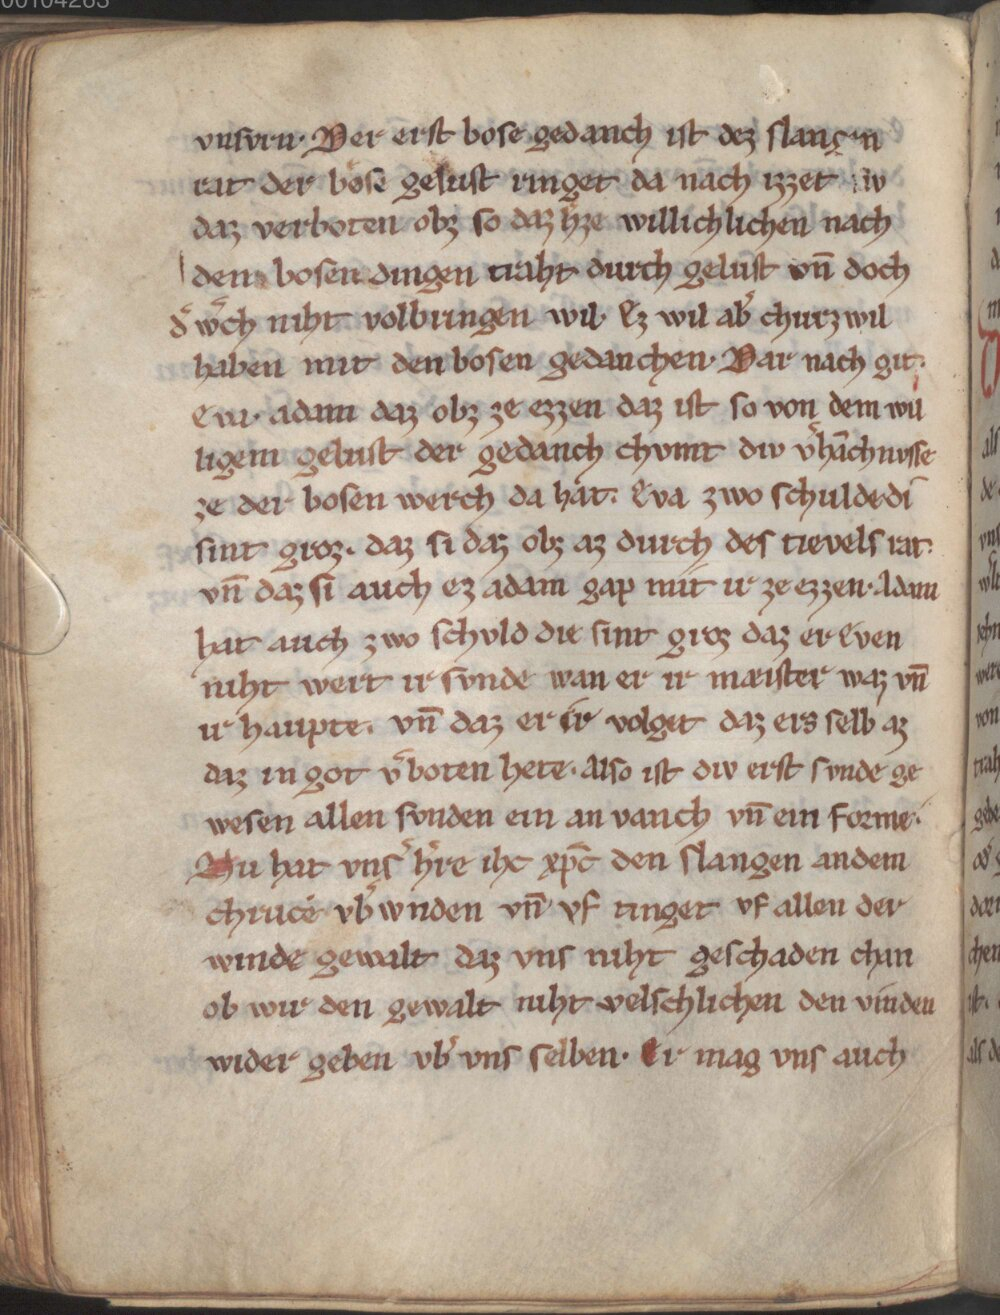 00104263
vnsvrn. Der erst bose gedanch ist dez slangen
rat der böse gelust ringet da nach izzet
daz verboten obz so daz hͤze willichlichen nach
den bosen dingen traht durch gelust vn̄ doch
wͦch niht volbringen wil. Ez wil ab͛ churzwil
haben mit den bosen gedanchen. Dar nach git.
Eva. adam daz obz ze ezzen daz ist so von dem wil
ligem gelust der gedanch chvmt div v͛hāchnvsse
ze der bosen werch da hat. Eva zwo schulde di
sint groz. daz si daz obz az durch des tievels rat.
vn̄ daz si auch ez adam gap mit ir ze ezzen. Adam
hat auch zwo schvld die sint groz daz er Even
niht wert ir svnde wan er ir mæister waz vn̄
ir haupte. vn̄ daz er ir volget daz ers selb az
daz in got v͛boten hete. Also ist div erst svnde ge
wesen allen svnden ein an vanch vn̄ ein forme.
Nu hat vns͛ h͛re ihc xp̄c den slangen an dem
chruce vb͛wnden vn̄ vf ringet vf allen der
winde gewalt daz vns niht geschaden chan
ob wir den gewalt niht velschlichen den vinden
wider geben vb͛ vns selben. Er mag vns auch